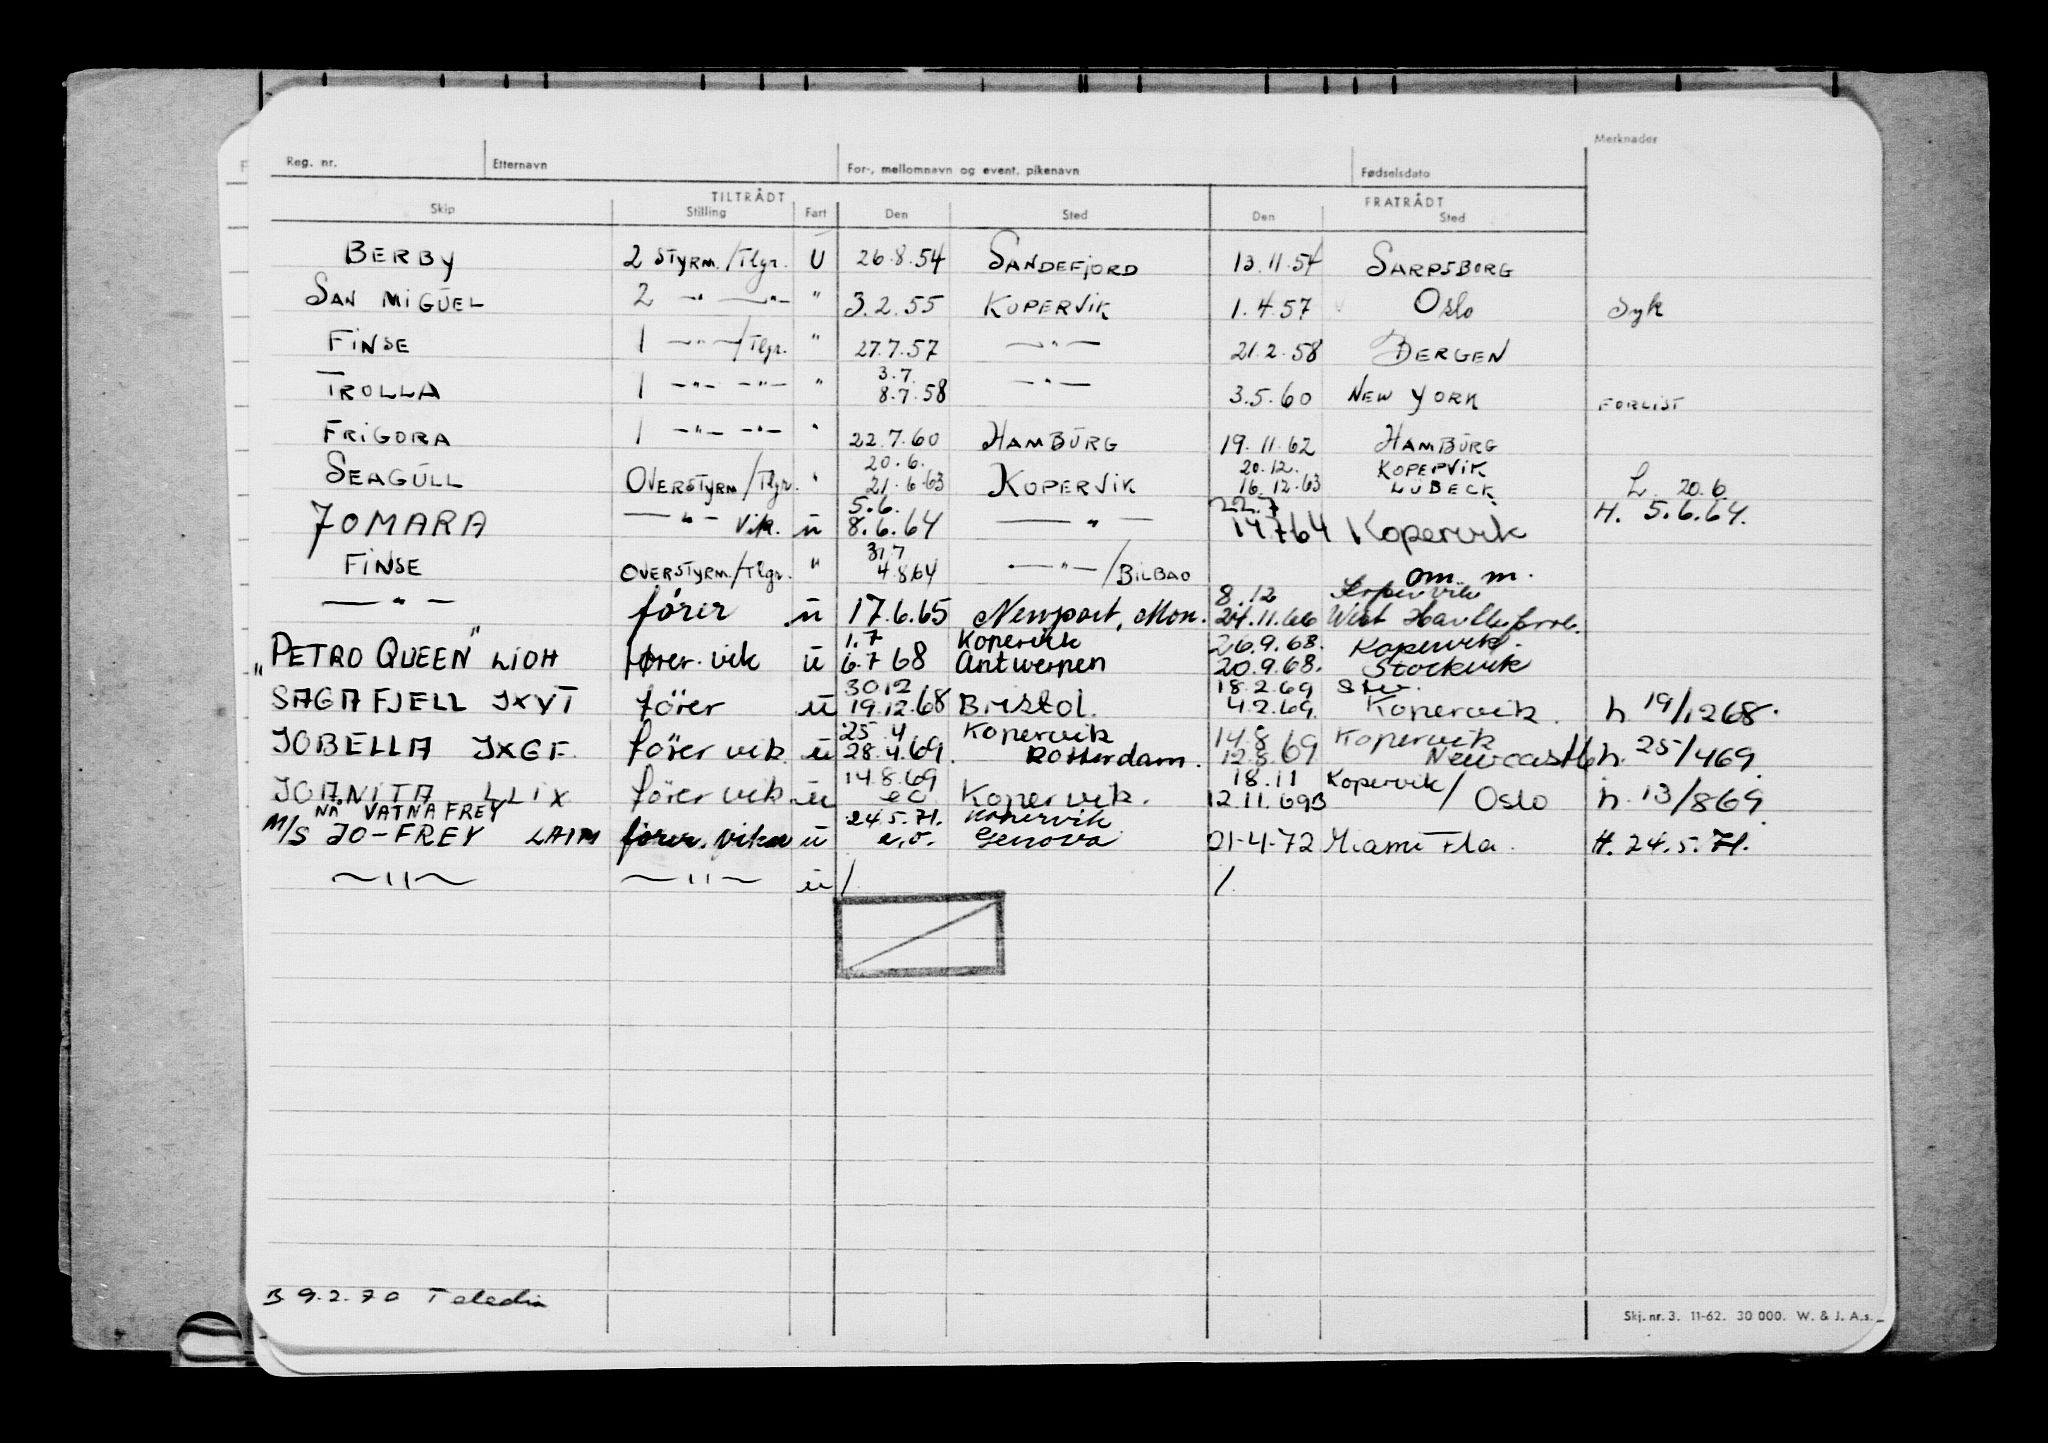 Reg. nr. Etternavn For-, mellomnavn og event. pikenavn Fødselsdato Merknader
TILTRÅDT FRATRÅDT
Skip Stilling Fart Den Sted Den Sted
BERBY 2 STYRM./Tlgr. U 26.8.54 SANDEFJORD 13.11.54 SARPSBORG
SAN MIGUEL 2 -"- -"- " 3.2.55 KOPERVIK 1.4.57 OSLO Syk
FINSE 1 -"-/Tlgr. " 27.7.57 -"- 21.2.58 BERGEN
3.7.
TROLLA 1 -"- -"- " 8.7.58 -"- 3.5.60 NEW YORK FORLIST
FRIGORA 1 -"- -"- " 22.7.60 HAMBURG 19.11.62 HAMBURG
20.6. 20.12. KOPERVIK
SEAGULL OVERSTYRM/Tlgr. " 21.6.63 KOPERVIK 16.12.63 LÜBECK L. 20.6
5.6. 22.7
JOMARA -"- Vik. u 8.6.64 -"- 14764 Kopervik H. 5.6.64.
31.7
FINSE OVERSTYRM./Tlgr. " 4.8.64 -"-/BILBAO om. m.
8.12 Kopervik
-"- fører u 17.6.65 Newport, Mon. 24.11.66 West
1.7 Kopervik 26.9.68. Kopervik.
"PETRO QUEEN" LIOH fører. vik u 6.7 68 Antwerpen 20.9.68. Stockvik
30 12 18.2.69
SAGAFJELL JXVT fører u 19.12.68 Bristol. 4.2.69. Kopervik. h 19/1268.
25 4 Kopervik 14.8 Kopervik
JOBELLA JXGF fører vik u 28.4.69. Rotterdam. 12.8.69 Newcastle h. 25/469.
14.8.69 18.11 Kopervik/
JOANITA LLIX fører vik u eo Kopervik. 12.11.69 Oslo h. 13/869.
NÅ VATNA FREY 24.5.71. Kopervik
M/S JO-FREY LAIM fører. vika u e.o. Genova 01-4-72 Miami Fla. H. 24.5.71.
-"- -"- u / /
B 9.2.70
Skj. nr. 3. 11-62. 30 000. W. & J. A.s.